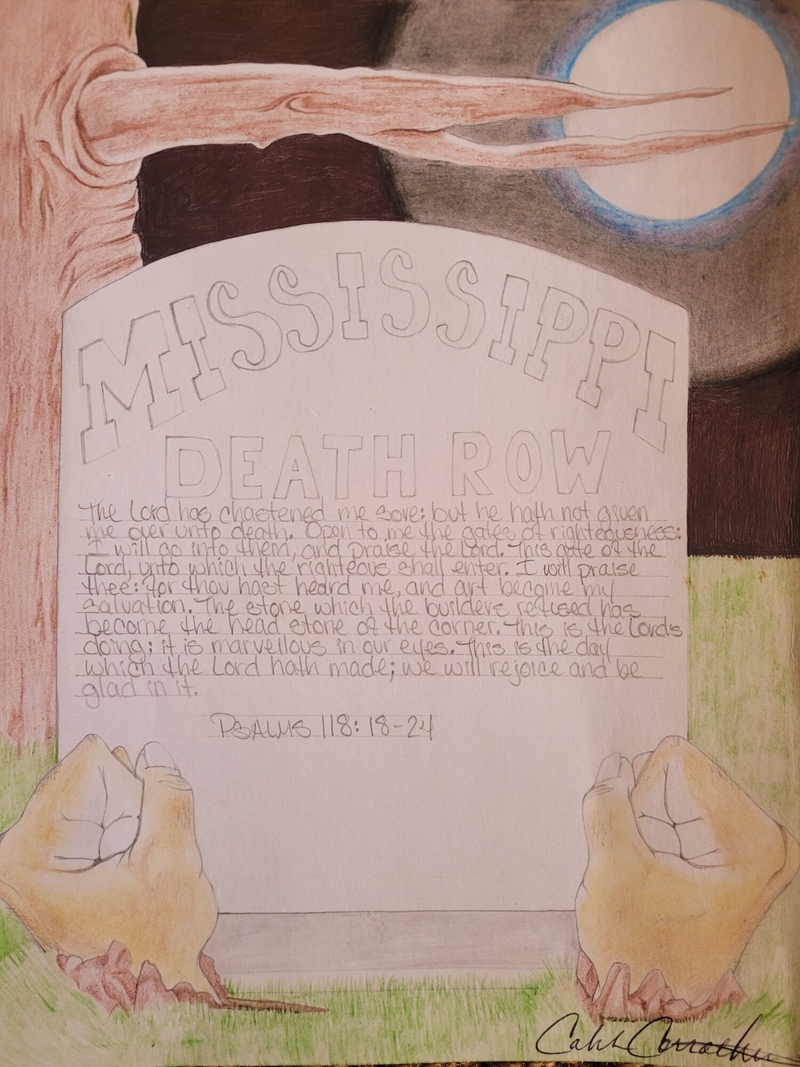 MISSISSIPPI
DEATH ROW
The Lord has chastened me sore: but he hath not given
me over unto death. Open to me the gates of righteousness:
I will go into them, and praise the Lord. This gate of the
Lord, unto which the righteous shall enter. I will praise
thee: for thou hast heard me, and art become my
salvation. The stone which the builders refused has
become the head stone of the corner. This is the Lords
doing; it is marvellous in our eyes. This is the day
which the Lord hath made; we will rejoice and be
glad in it.
PSALMS 118:18-24